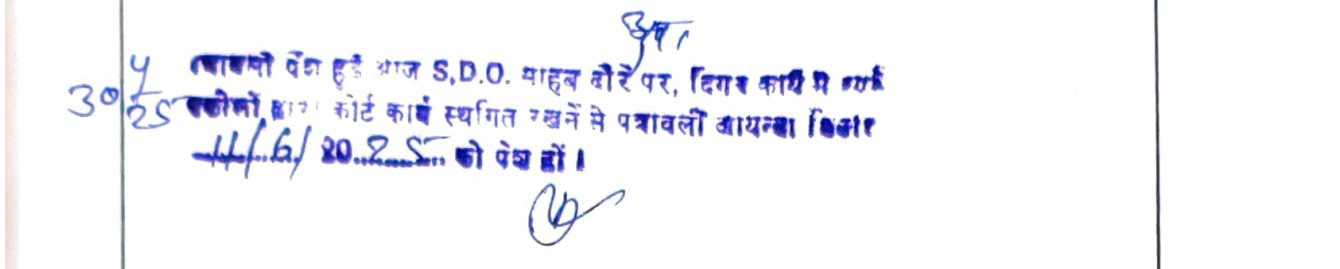 30/4/25 पत्रावली पेश हुई आज S.D.O. साहब दौरे पर, दिगर कार्य में व्यस्त
वकीलों द्वारा कोर्ट कार्य स्थगित रखनें से पत्रावली आयन्दा
11/6/2025 को पेश हों।